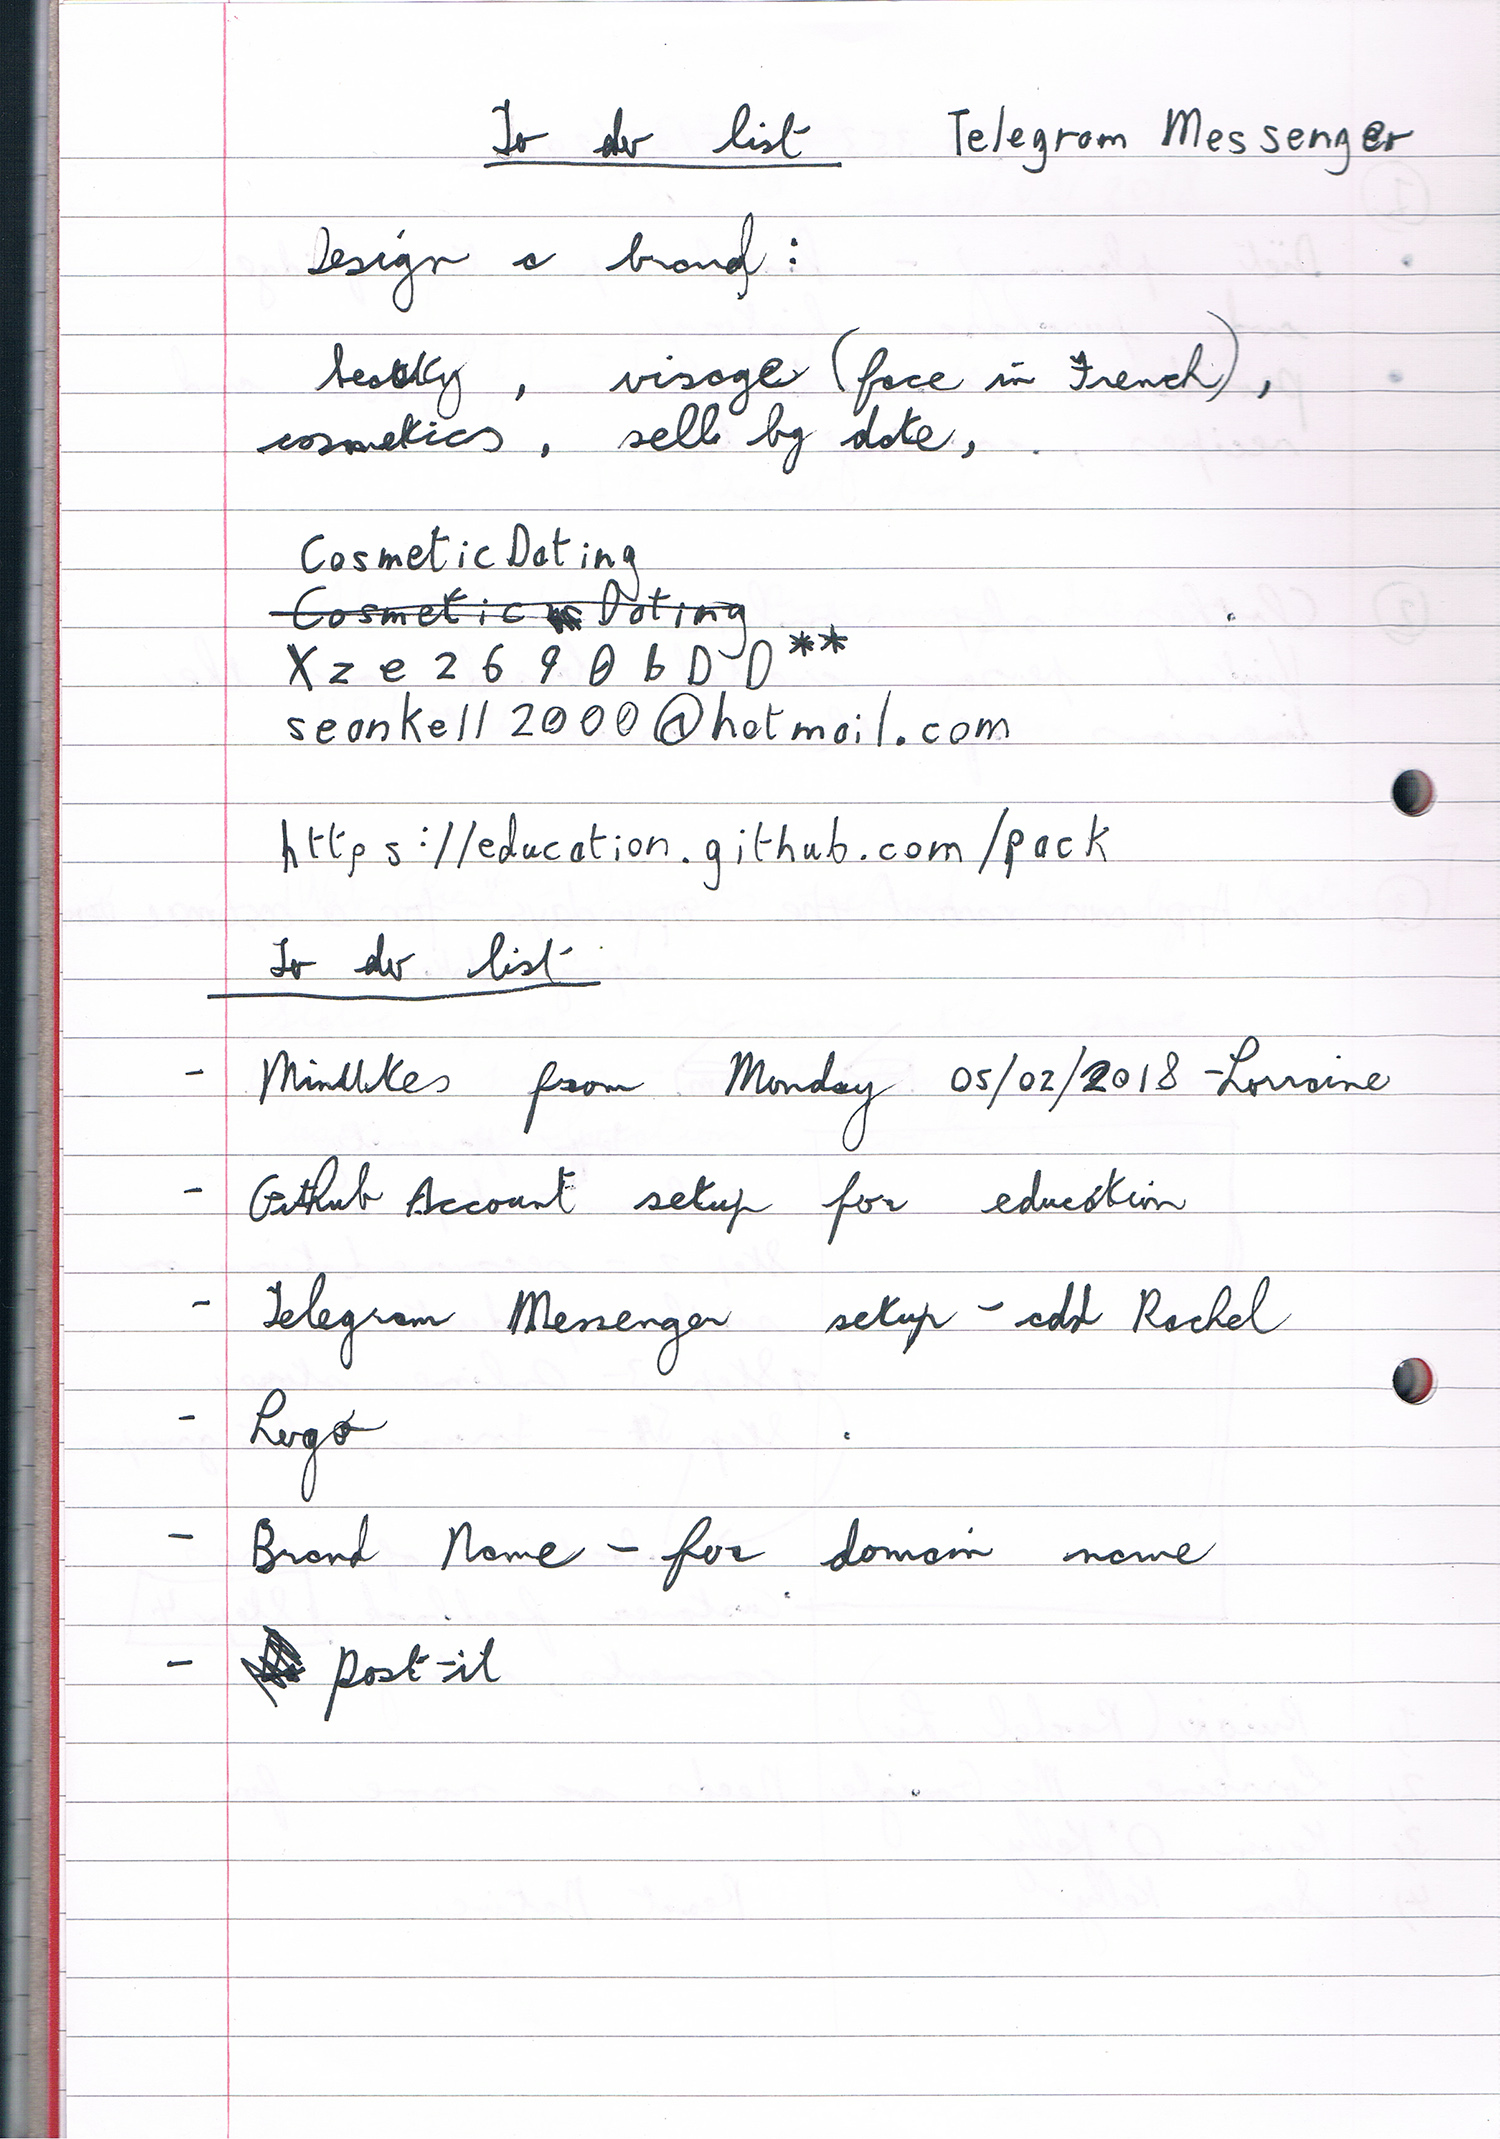 To do list Telegram Messenger
Design a brand:
beauty, visage (face in French),
cosmetics, sell by date,
CosmeticDating
Cosmetic Dating
Xze2690bDD**
seankell2000@hotmail.com
https://education.github.com/pack
To do list
- Minutes from Monday 05/02/2018 - Lorraine
- Github Account setup for education
- Telegram Messenger setup - add Rachel
- Logo
- Brand Name - for domain name
- post-it